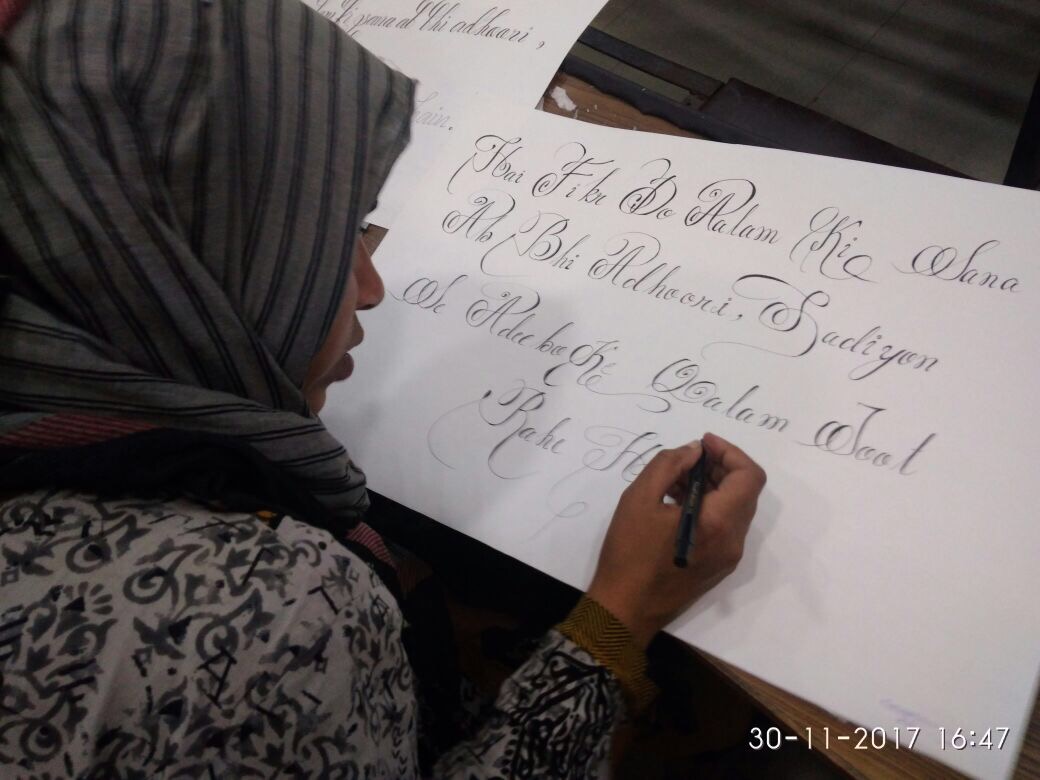 adhoori,
hain.
Hai Fikr Do Aalam Ki Sana
Ab Bhi Adhoori, Sadiyon
Se Adeebo Ke Qalam Toot
Rahe H
30-11-2017 16:47